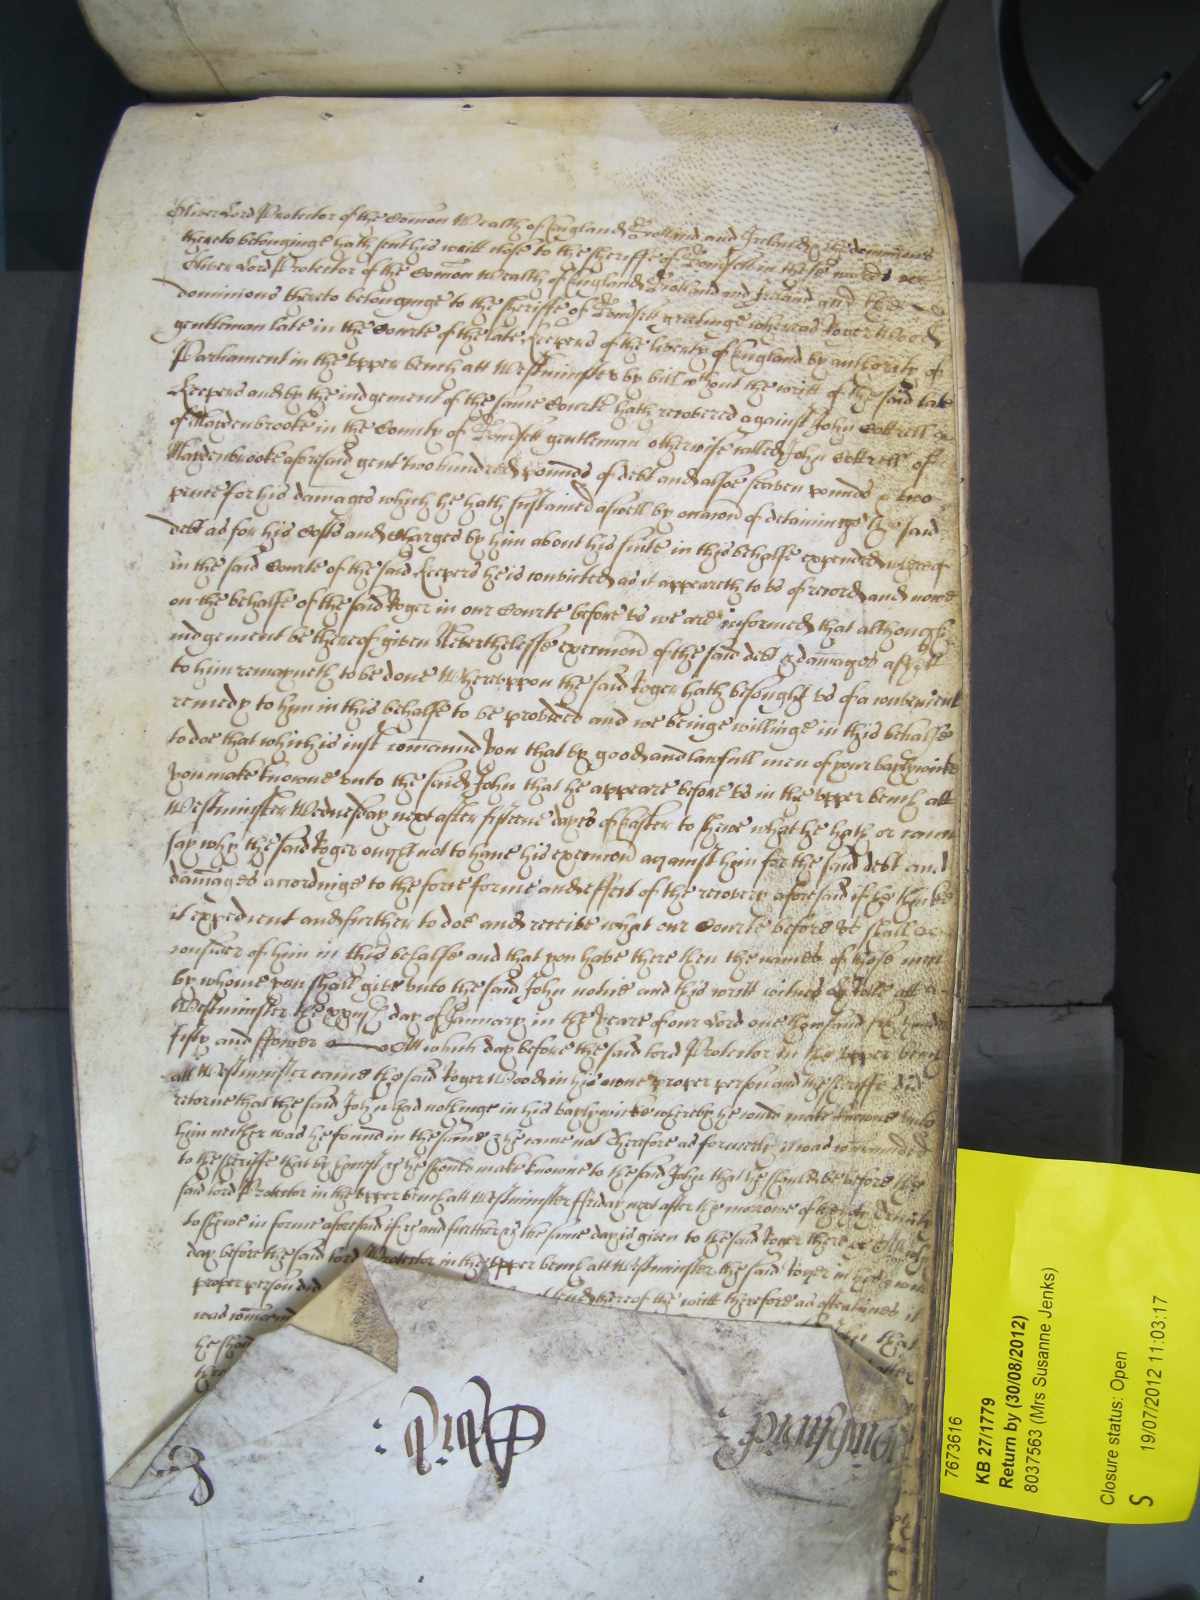 Oliver Lord Protector of the Com̄on Wealth of England Scotland and Ireland & the dominions
thereto belonginge hath sent his writt close to the sheriffe of in these words
Oliver Lord Protector of the Com̄on Wealth of England Scotland and Ireland and the
dominions thereto belonginge to the sheriffe of greetinge whereas Roger Wood
gentleman late in the Courte of the late Keepers of the liberty of England by authority of
Parliament in the upper bench att Westminster by bill without the writt of the said late
Keepers and by the iudgement of the same Courte hath recovered against John Cottrell
of in the County of gentleman otherwise called John Cottrell of
aforesaid gent two hundred pounds of debt and alsoe seaven pounds & two
pence for his damages which he hath sustained aswell by occacon of detaininge the said
debt as for his Costs and Charges by him about his suite in this behalfe expended whereof
in the said Courte of the said Keepers he is convicted as it appeareth to us of record and nowe
on the behalfe of the said Roger in our Courte before us we are informed that although
iudgement be thereof given Neverthelesse execucon of the said debt & dam̄ages as yett
to him remayneth to be done Whereuppon the said Roger hath besought us of a convenient
remedy to him in this behalfe to be provided and we beinge willinge in this behalfe
to doe that which is iust com̄annd you that by good and lawfull men of your baylywicke
you make knowne unto the said John that he appeare before us in the upper bench att
Westminster Wednesday next after fifteene dayes of Easter to shewe what he hath or cann
say why the said Roger ought not to have his execucon against him for the said debt and
dam̄ages accordinge to the force forme and effect of the recovery aforesaid if he thinke
it expedient and further to doe and receive what our Courte before us shall
consider of him in this behalfe and that you have there then the names of those men
by whome you shall give unto the said John notice and this writt witnes Rolle att
Westminster the day of January in the yeare of our Lord one thowsand six hundred
fifty and ffower Att which day before the said lord Protector in the upper bench
att Westminster came the said Roger Wood in his owne proper person and the sheriffe did
retorne that the said John had nothinge in his baylywicke whereby he could make knowne unto
him neither was he found in the same & he came not Therefore as formerly it was com̄anded
to the sheriffe that by he should make knowne to the said John that he should be before the
said lord Protector in the upper bench att Westminster ffriday next after the morrowe of the holy Trinity
to shewe in forme aforesaid if &c and further &c the same day is given to the said Roger there &c Att wch
day before the said lord Protector in the upper bench att Westminster the said Roger in his owne
proper person did thereof the writt therefore as oftentimes it
was com̄an that
he shou
the
7673616
KB 27/1779
Return by (30/08/2012)
8037563 (Mrs Susanne Jenks)
Closure status: Open
S
19/07/2012 11:03:17